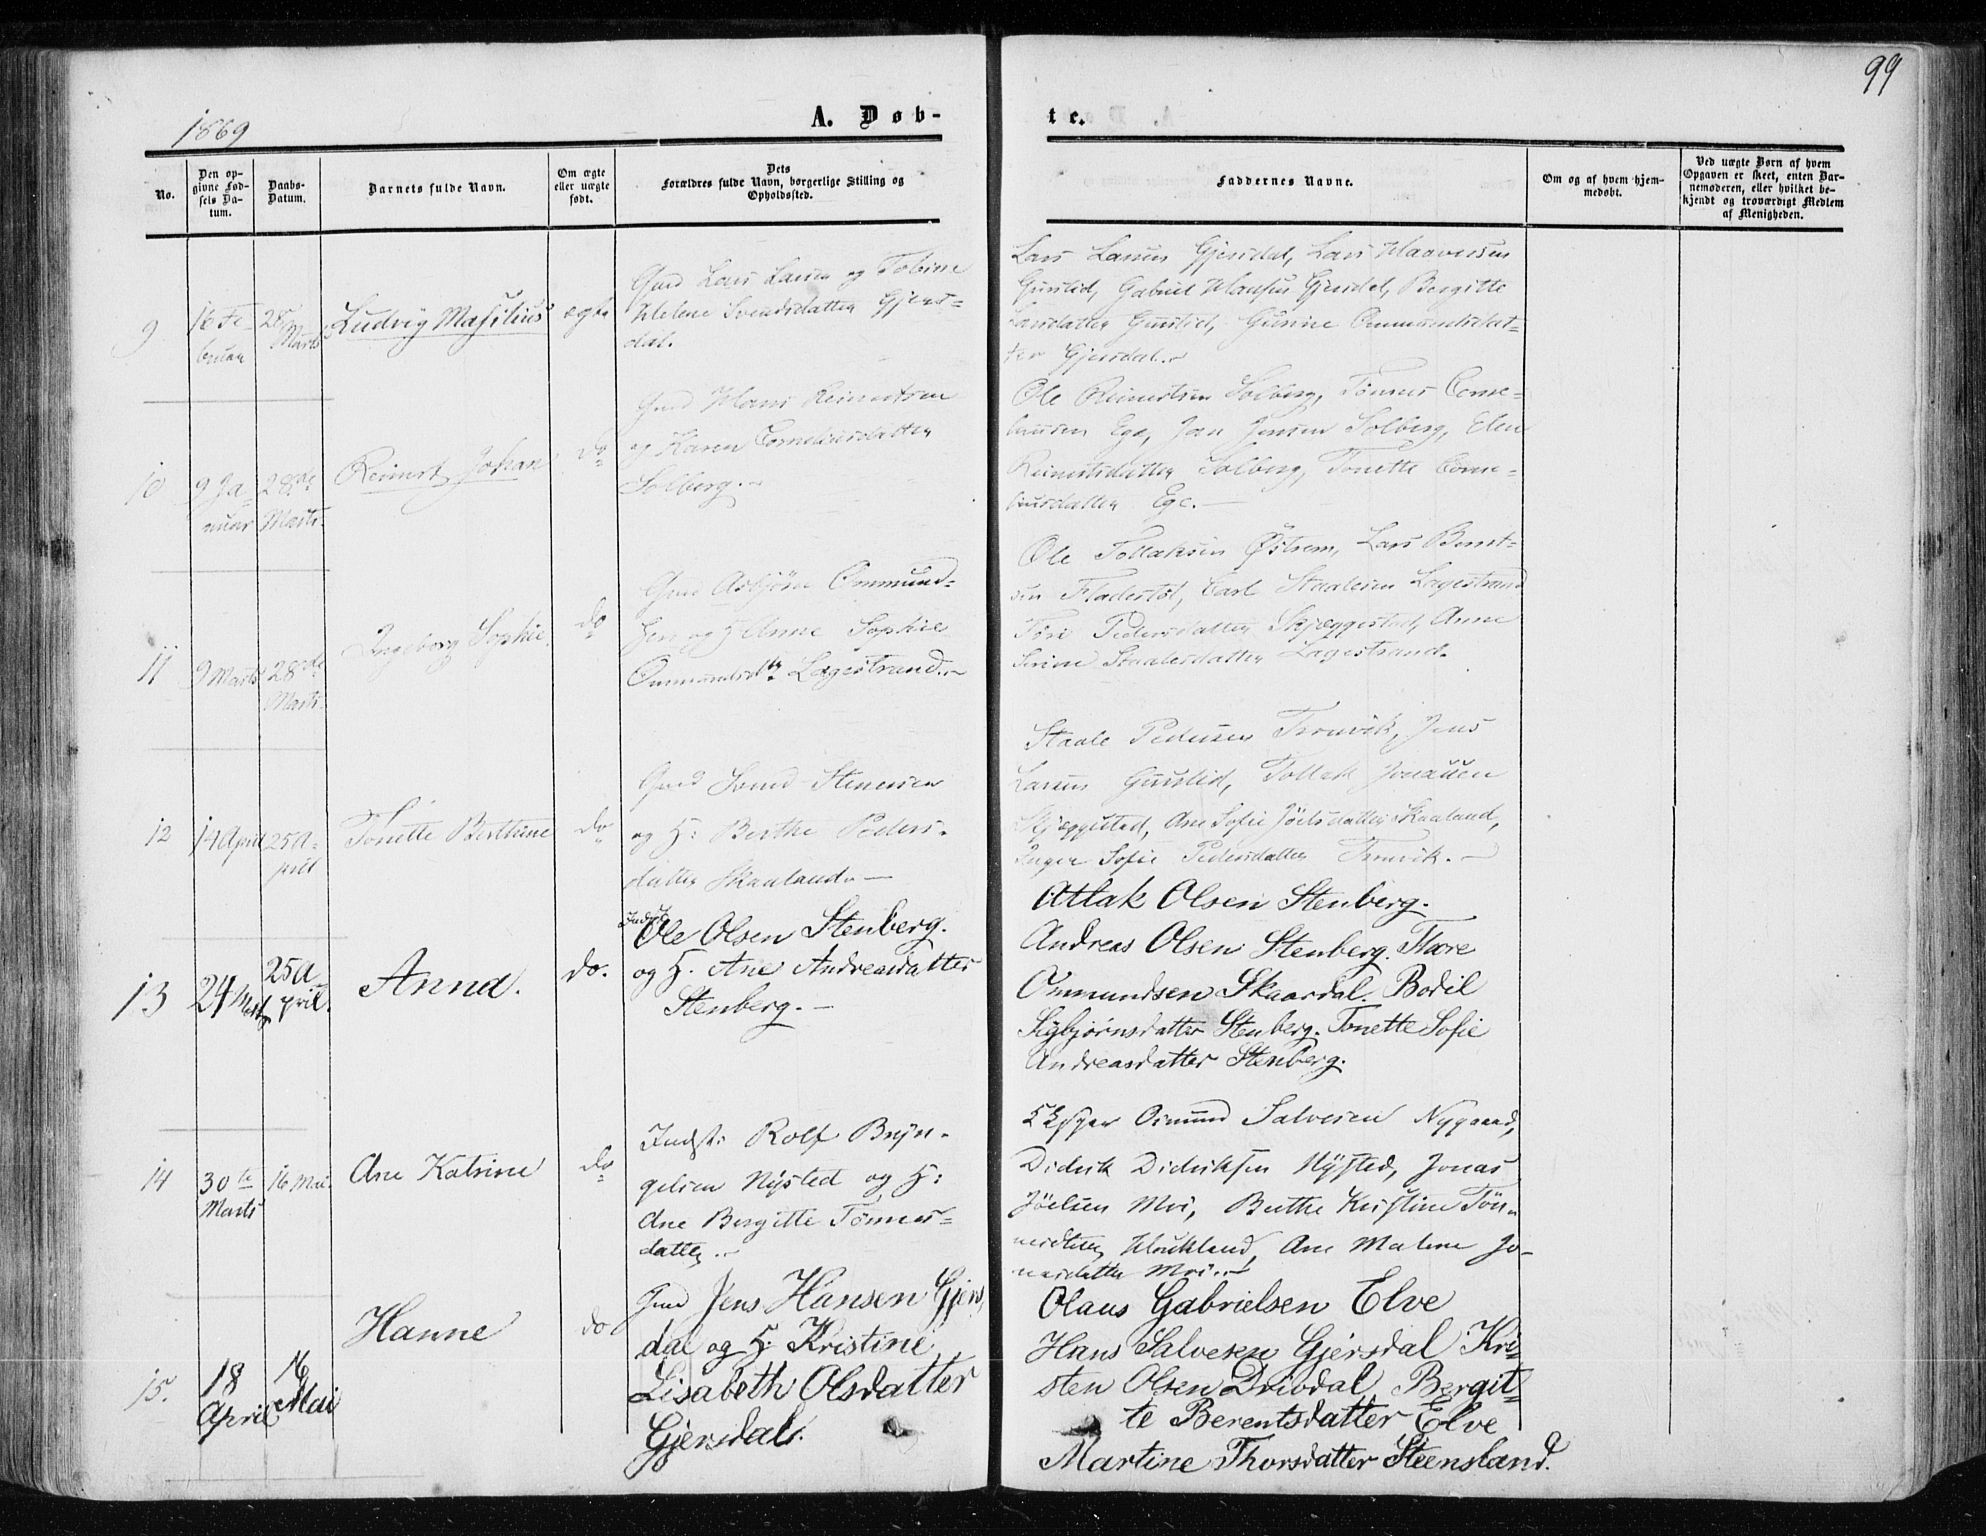 99
1869
A. Døb-
te.
No.
Den op-
givne Fød-
sels Da-
tum.
Daabs-
Datum.
Barnets fulde Navn.
Om ægte
eller uægte
født.
Dets
Forældres fulde Navn, borgerlige Stilling og
Opholdssted.
Faddernes Navne.
Om og af hvem hjem-
medøbt.
Ved uægte Børn af hvem
Opgaven er skeet, enten Bar-
nemoderen, eller hvilket be-
kjendt og troværdigt Medlem
af Menigheden.
9
16 Fe-
bruar
28
Marts
Ludvig Masilius
ægte
Gmd Lars Larsen og Tobine
Helene Svendsdatter Gjers-
dal.
Lars Larsen Gjersdal, Lars Haaversen
Gurslid, Gabriel Hansen Gjersdal, Bergitte
Larsdatter Gurslid, Gurine Ommundsdat-
ter Gjersdal.
10
9 Ja-
nuar
28de
Marts.
Reinert Johan
do
Gmd Hans Reinertsen
og Karen Corneliusdatter
Solberg.
Ole Reinertsen Solberg, Tønnes Corne-
liussen Ege, Jan Jensen Solberg, Elen
Reinertsdatter Solberg, Tonette Corne-
liusdatter Ege.
11
9 Marts
28de
Marts.
Ingeborg Sophie
do
Gmd Asbjørn Ommund-
sen og H Anne Sophie
Ommundsdtr Lægestrand.
Ole Tollaksen Østrem, Lars Bernt-
sen Fladestøl, Carl Staalesen Lægestrand
Tøri Pedersdatter Skjæggestad, Anne
Serine Staalesdatter Lægestrand.
12
14 April
25 A-
pril
Tonette Berthine
do
Gmd Svend Stenersen
og H: Berthe Peders-
datter Skaaland.
Staale Pedersen Tronvik, Jens
Larsen Gurslid, Tollak Jonassen
Skjæggestad, Ane Sofie Jöelsdatter Skaaland,
Inger Sofie Pedersdatter Tronvik.
13
24 Marts
25 A
pril.
Anna.
do.
Indst
Ole Olsen Stenberg.
og H. Ane Andreasdatter
Stenberg.
Atlak Olsen Stenberg.
Andreas Olsen Stenberg. Thore
Ommundsen Skaardal. Bodil
Sigbjørnsdatter Stenberg. Tonette Sofie
Andreasdatter Stenberg.
14
30te
Marts
16 Mai.
Ane Katrine
do
Indst: Rolf Bryn-
gelsen Nysted og H:
Ane Bergitte Tønnes-
datter.
Osmund Salvesen Nygaard,
Didrik Didriksen Nysted, Jonas
Jöelsen Moi, Berthe Kristine Tön-
nesdtter Haukland, Ane Malene Jo-
nasdatter Moi.
15.
18
April
16
Mai
Hanne
do
Gmd Jens Hansen Gjers-
dal og H: Kristine
Lisabeth Olsdatter
Gjersdal.
Olaus Gabrielsen Elve
Hans Salvesen Gjersdal Kri-
sten Olsen Drivdal Bergit-
te Berentsdatter Elve
Martine Thorsdatter Steensland.